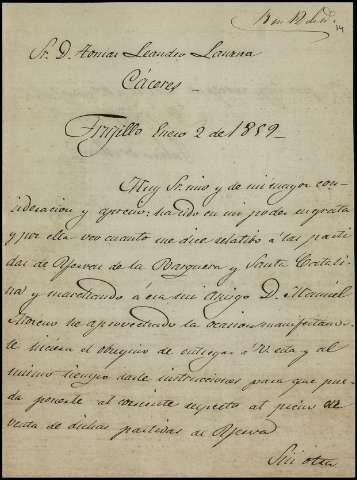 Sr. D. Tomas Leandro
Cáceres
Trujillo Enero 2 de 1859
Muy Sr. mio y de mi mayor con-
sideracion y aprecio: ha sido en mi poder su grata
y por ella veo cuanto me dice relativo á las parti-
das de de la y Santa Catali-
na y marchando á esa mi amigo D. Manuel
Moreno he aprovechado la ocasion manifestando-
le hiciera el obsequio de entregar á V. esta y al
mismo tiempo darle instrucciones para que pue-
da ponerle al corriente respecto al precio de
venta de dichas partidas de
Sin otra